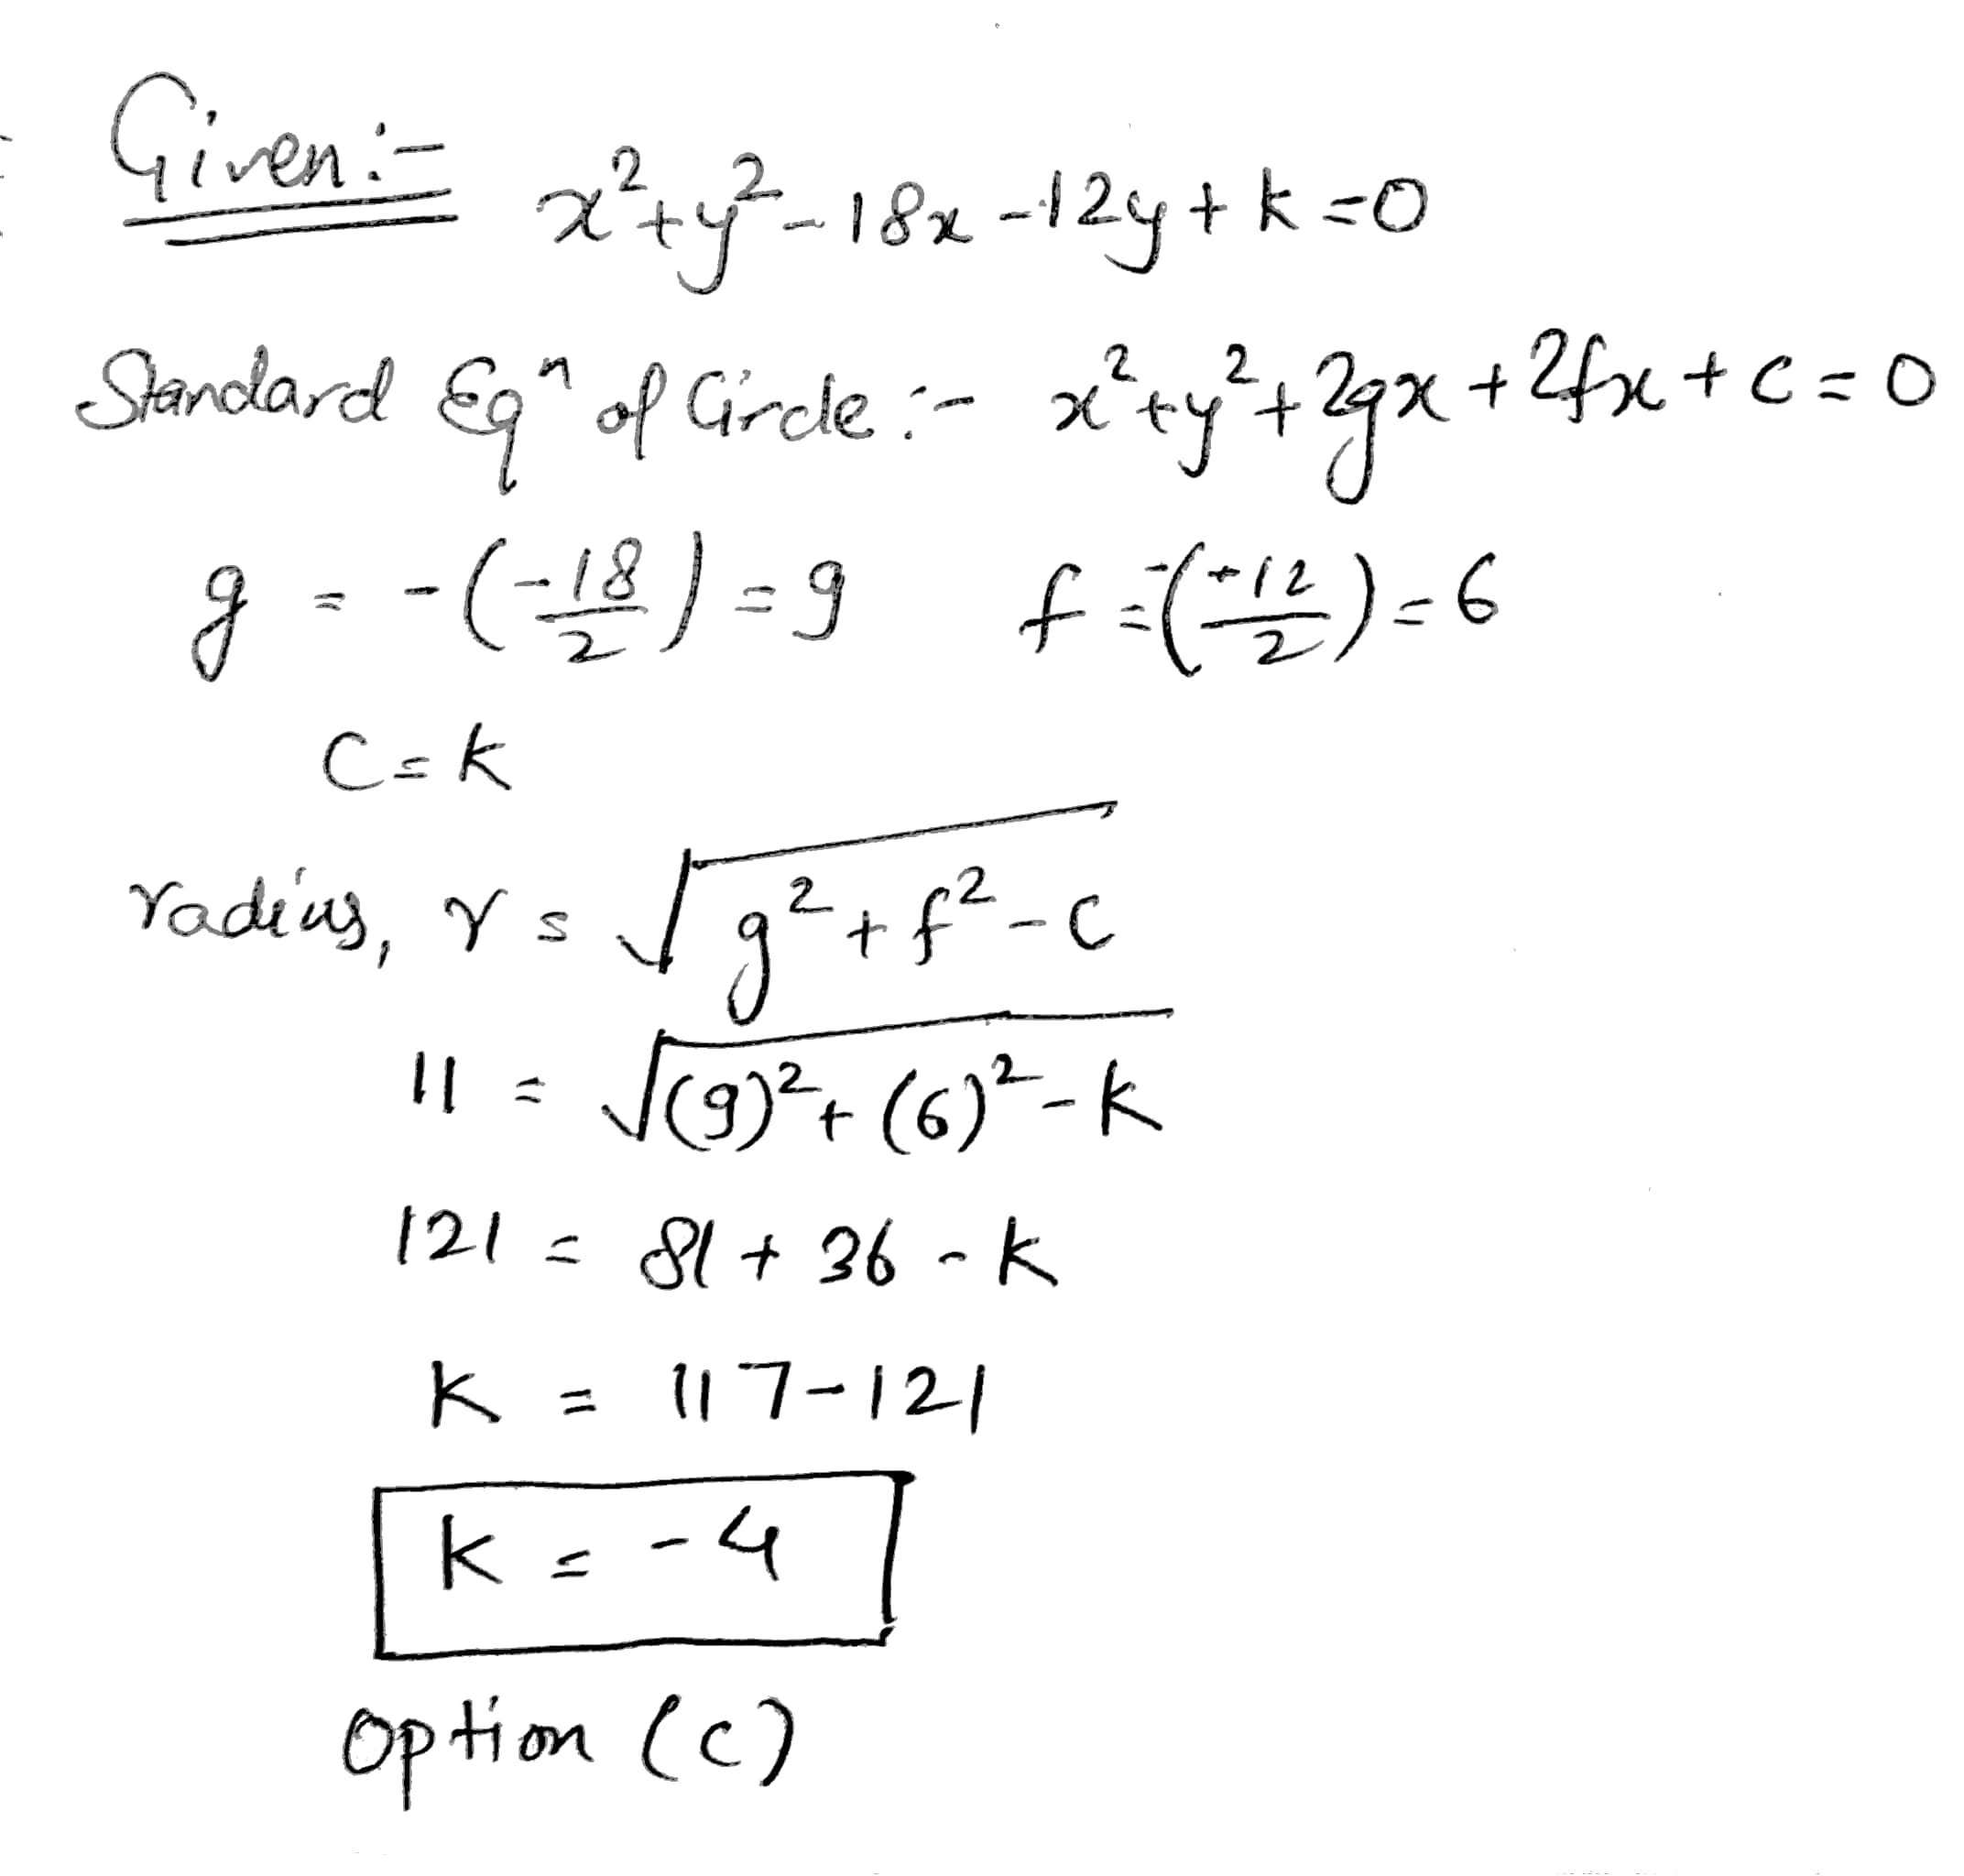 Given :-  x²+y²-18x-12y+k=0
Standard Eqⁿ of Circle :- x²+y²+2gx+2fx+c=0
g = -(-18/2) = 9   f = -(+12/2) = 6
C = k
radius, r = √(g²+f²-c)
11 = √((9)²+(6)²-k)
121 = 81+36-k
K = 117-121
K = -4
Option (c)